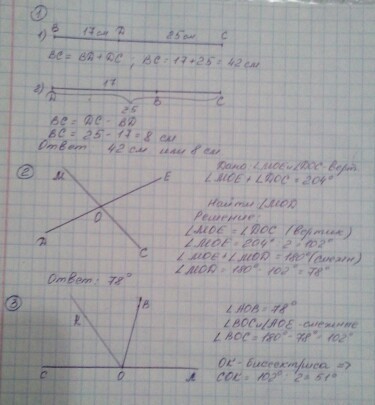 1
B 17см D 25см C
1)
BC = BD + DC ; BC = 17 + 25 = 42 см
2) 17
D B C
25
BC = DC - BD
BC = 25 - 17 = 8 см
Ответ 42 см или 8 см
2
M E
O
D C
Дано: ∠MOE и ∠DOC - верт
∠MOE + ∠DOC = 204°
Найти ∠MOD
Решение:
∠MOE = ∠DOC (вертик)
∠MOE = 204° : 2 = 102°
∠MOE + ∠MOD = 180° (смежн)
∠MOD = 180° - 102° = 78°
Ответ: 78°
3
K B
C O A
∠AOB = 78°
∠BOC и ∠AOE - смежные
∠BOC = 180° - 78° = 102°
OK - биссектриса =>
COK = 102° : 2 = 51°